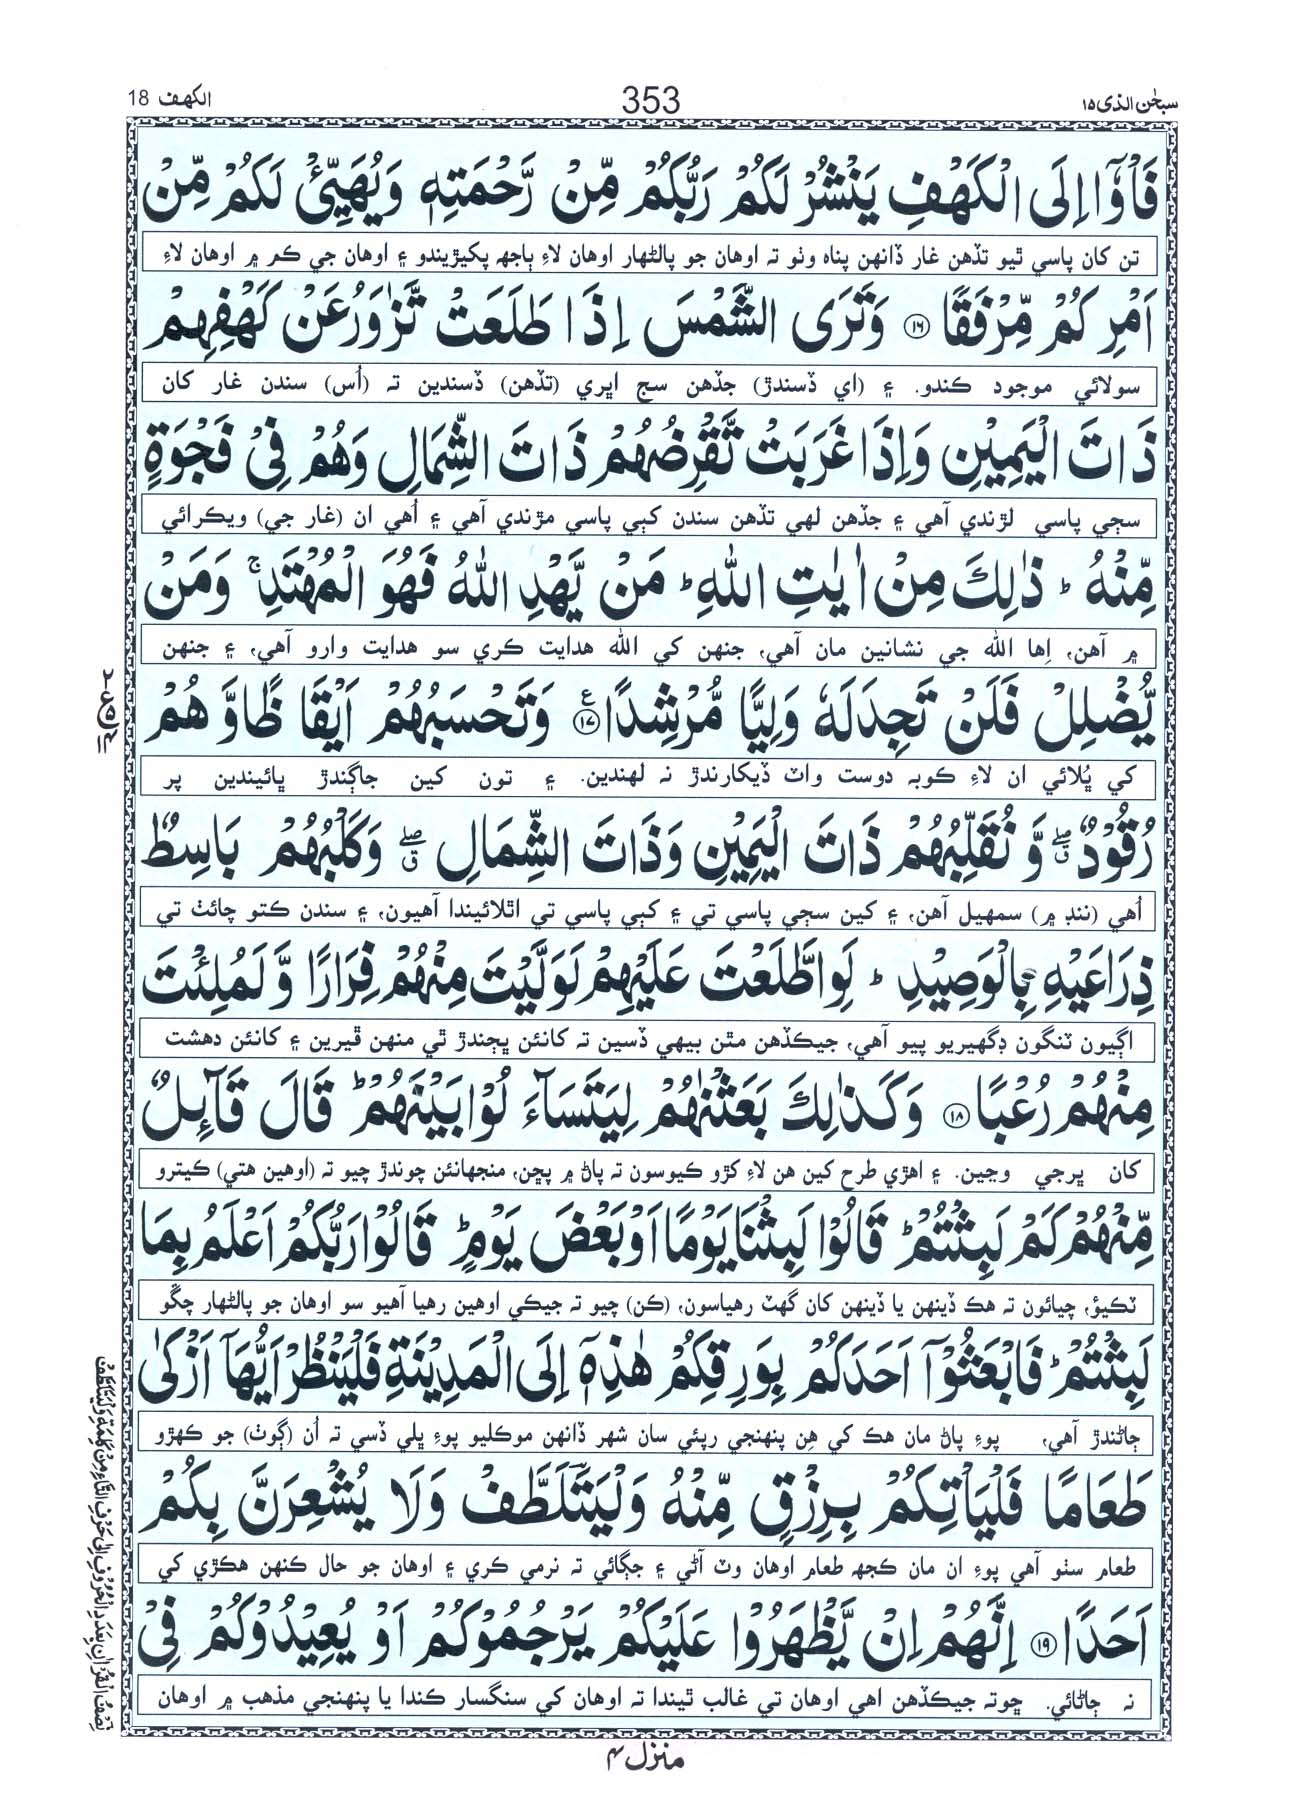 سبحٰن الذی ۱۵
353
الکهف 18
فَاْوٗۤا اِلَی الْكَهْفِ یَنْشُرْ لَكُمْ رَبُّكُمْ مِّنْ رَّحْمَتِهٖ وَیُهَیِّئْ لَكُمْ مِّنْ
تن کان پاسي ٿيو تڏهن غار ڏانهن پناه وٺو تہ اوهان جو پالڻهار اوهان لاءِ ٻاجهہ پکيڙيندو ۽ اوهان جي ڪم ۾ اوهان لاءِ
اَمْرِ كُمْ مِّرْفَقًا ﴿۱۶﴾ وَتَرَی الشَّمْسَ اِذَا طَلَعَتْ تَّزٰوَرُ عَنْ كَهْفِهِمْ
سولائي موجود ڪندو. ۽ (اي ڏسندڙ) جڏهن سج اڀري (تڏهن) ڏسندين تہ (اُس) سندن غار کان
ذَاتَ الْیَمِیْنِ وَاِذَا غَرَبَتْ تَّقْرِضُهُمْ ذَاتَ الشِّمَالِ وَهُمْ فِیْ فَجْوَةٍ
سڄي پاسي لڙندي آهي ۽ جڏهن لهي تڏهن سندن کٻي پاسي مڙندي آهي ۽ اُهي ان (غار جي) ويڪرائي
مِّنْهُ ؕ ذٰلِكَ مِنْ اٰیٰتِ اللّٰهِ ؕ مَنْ یَّهْدِ اللّٰهُ فَهُوَ الْمُهْتَدِ ۚ وَمَنْ
۾ آهن، اِها الله جي نشانين مان آهي، جنهن کي الله هدايت ڪري سو هدايت وارو آهي، ۽ جنهن
یُّضْلِلْ فَلَنْ تَجِدَ لَهٗ وَلِیًّا مُّرْشِدًا ﴿۱۷﴾ ع وَتَحْسَبُهُمْ اَیْقَا ظًا وَّ هُمْ
کي ڀُلائي ان لاءِ ڪوبہ دوست واٽ ڏيکارندڙ نہ لهندين. ۽ تون کين جاڳندڙ ڀائيندين پر
رُقُوْدٌ ۖۗ وَّ نُقَلِّبُهُمْ ذَاتَ الْیَمِیْنِ وَذَاتَ الشِّمَالِ ۖۗ وَكَلْبُهُمْ بَاسِطٌ
اُهي (ننڊ ۾) سمهيل آهن، ۽ کين سڄي پاسي تي ۽ کٻي پاسي تي اٿلائيندا آهيون، ۽ سندن ڪتو چائٺ تي
ذِرَاعَیْهِ بِالْوَصِیْدِ ؕ لَوِ اطَّلَعْتَ عَلَیْهِمْ لَوَلَّیْتَ مِنْهُمْ فِرَارًا وَّ لَمُلِئْتَ
اڳيون ٽنگون ڊگهيريو پيو آهي، جيڪڏهن مٿن بيهي ڏسين تہ کانئن ڀڄندڙ ٿي منهن ڦيرين ۽ کانئن دهشت
مِنْهُمْ رُعْبًا ﴿۱۸﴾ وَكَذٰلِكَ بَعَثْنٰهُمْ لِیَتَسَآءَ لُوْا بَیْنَهُمْ ؕ قَالَ قَآئِلٌ
کان ڀرجي وڃين. ۽ اهڙي طرح کين هن لاءِ کڙو ڪيوسون تہ پاڻ ۾ پڇن، منجهانئن چوندڙ چيو تہ (اوهين هتي) ڪيترو
مِّنْهُمْ كَمْ لَبِثْتُمْ ؕ قَالُوْا لَبِثْنَا یَوْمًا اَوْ بَعْضَ یَوْمٍ ؕ قَالُوْا رَبُّكُمْ اَعْلَمُ بِمَا
ٽڪيؤ، چيائون تہ هڪ ڏينهن يا ڏينهن کان گهٽ رهياسون، (ڪن) چيو تہ جيڪي اوهين رهيا آهيو سو اوهان جو پالڻهار چڱو
لَبِثْتُمْ ؕ فَابْعَثُوْۤا اَحَدَكُمْ بِوَرِ قِكُمْ هٰذِهٖۤ اِلَی الْمَدِیْنَةِ فَلْیَنْظُرْ اَیُّهَاۤ اَزْكٰی
ڄاڻندڙ آهي، پوءِ پاڻ مان هڪ کي هِن پنهنجي رپئي سان شهر ڏانهن موڪليو پوءِ ڀلي ڏسي تہ اُن (ڳوٺ) جو ڪهڙو
طَعَامًا فَلْیَاْتِكُمْ بِرِزْقٍ مِّنْهُ وَلْیَتَلَطَّفْ وَلَا یُشْعِرَنَّ بِكُمْ
طعام سٺو آهي پوءِ ان مان ڪجهہ طعام اوهان وٽ آڻي ۽ جڳائي تہ نرمي ڪري ۽ اوهان جو حال ڪنهن هڪڙي کي
اَحَدًا ﴿۱۹﴾ اِنَّهُمْ اِنْ یَّظْهَرُوْا عَلَیْكُمْ یَرْجُمُوْكُمْ اَوْ یُعِیْدُوْكُمْ فِیْ
نہ ڄاڻائي. ڇوتہ جيڪڏهن اهي اوهان تي غالب ٿيندا تہ اوهان کي سنگسار ڪندا يا پنهنجي مذهب ۾ اوهان
منزل ۴